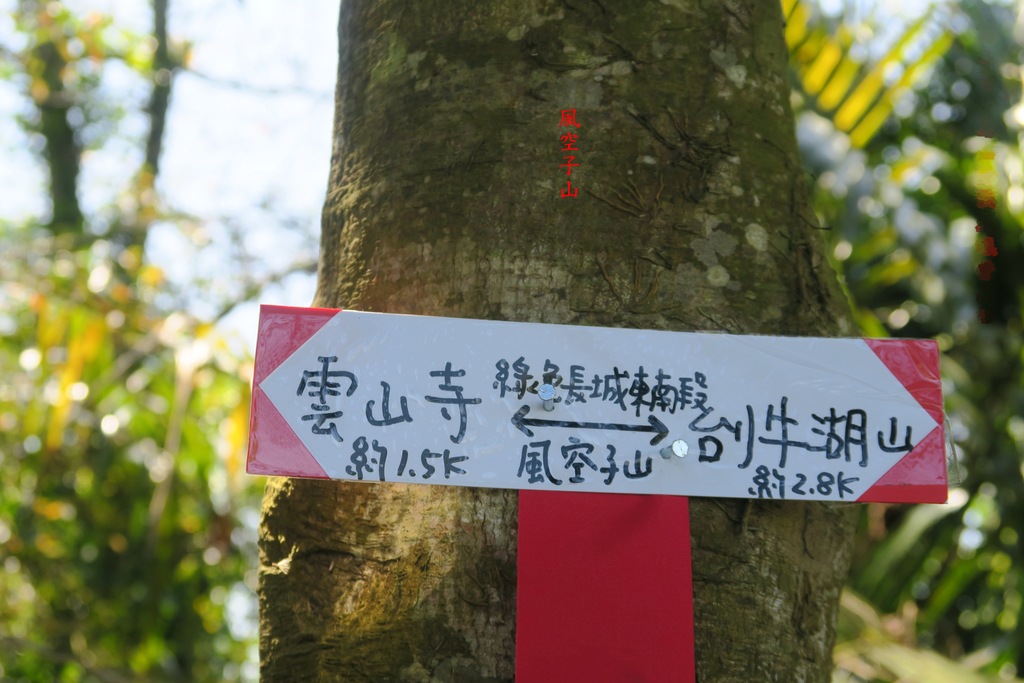 風空子山
雲山寺
約1.5K
綠色長城東南段
風空子山
刣牛湖山
約2.8K